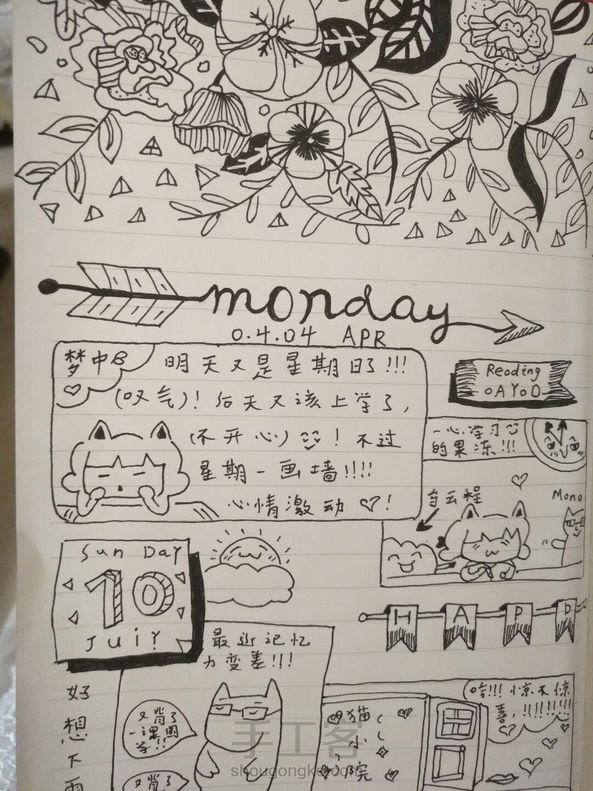 monday
0.4.04 APR
梦中B
明天又是星期日了!!!
(叹气)! 后天又该上学了,
(不开心)! 不过
星期一画墙!!!!
心情激动 ♡!
Reading
DAY
一心学习
的果冻!!!
白云程
Mono
Sun DAY
10
JuiY
最近记忆
力变差!!!
又背了
一课
又背了
好想下雨
HAPP
猫
小
院
哈!!! 惊不惊
喜,!!!!!!!!
手工客
shougongke.com